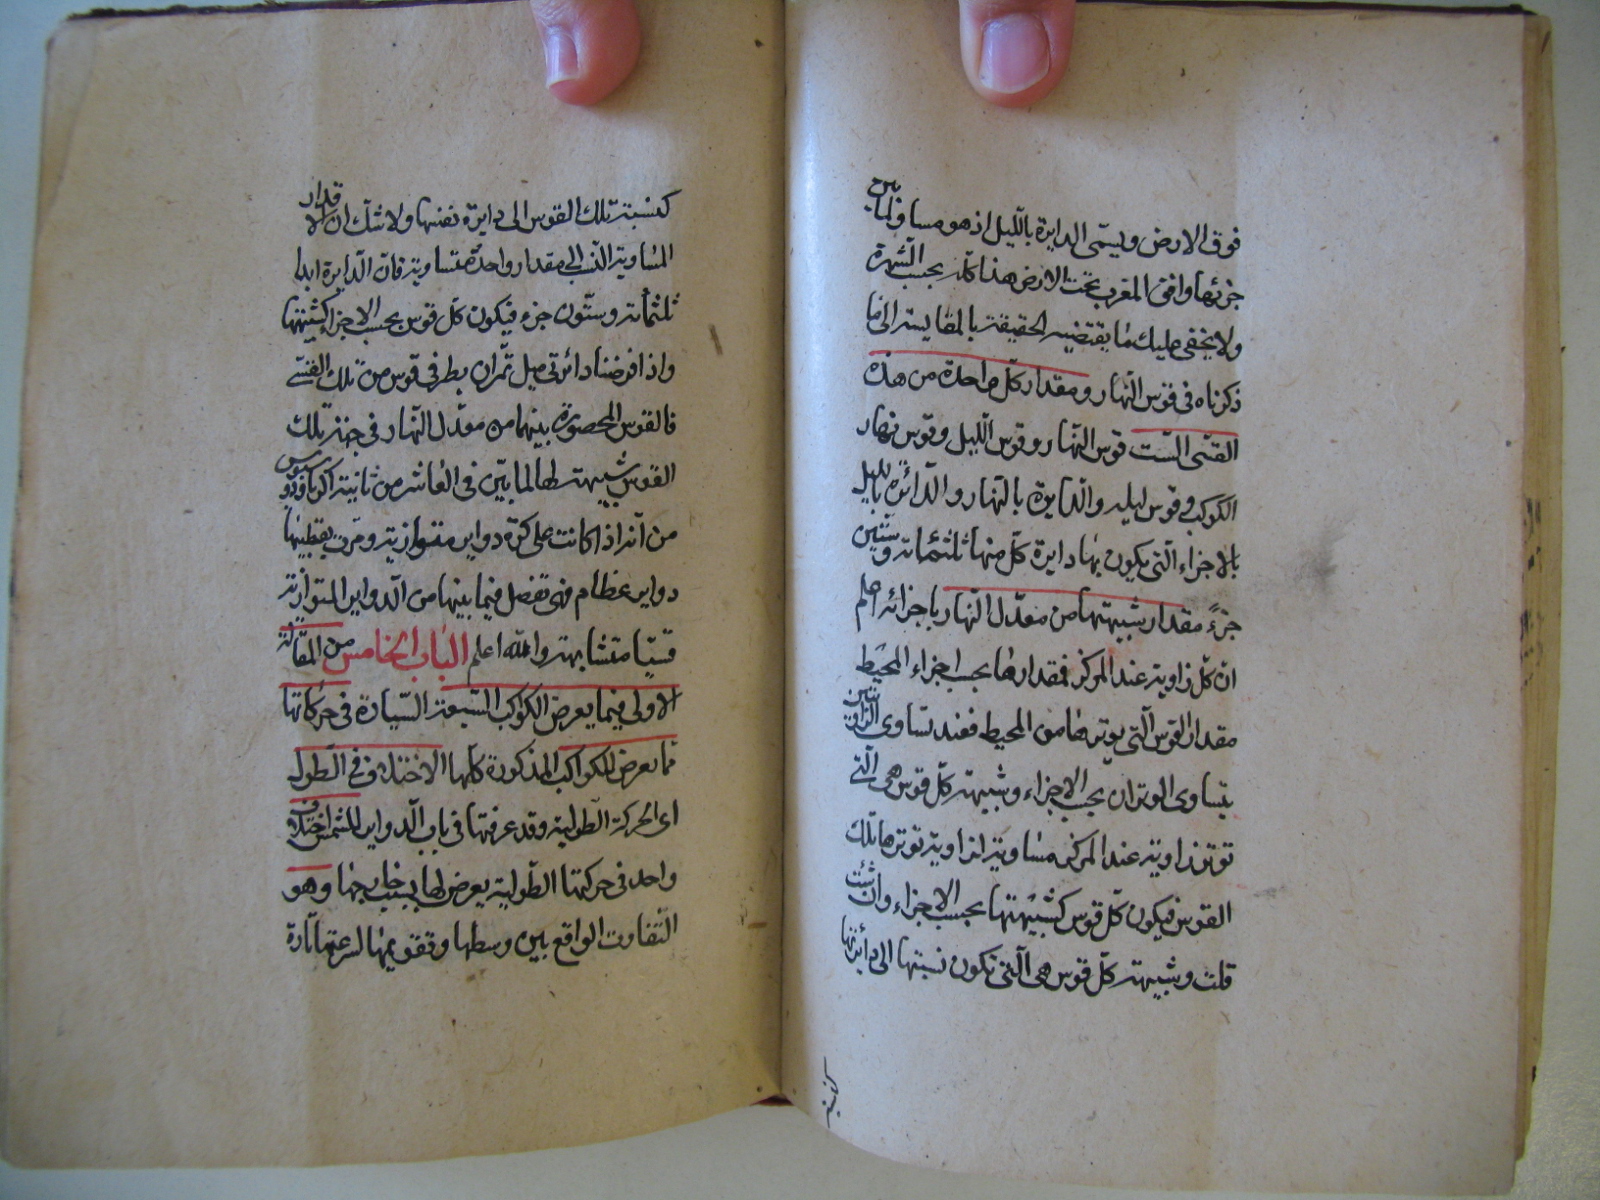 فوق الارض ويسمى الدايرة بالليل اذ هو مساو لما بين
جزئها وافق المغرب تحت الارض هذا كله بحسب الشهرة
ولا يخفى عليك ما يقتضيه الحقيقة بالمقايسة الى ما
ذكرناه فى قوس النهار ومقدار كل واحدة من هذه
القسى الست قوس النهار وقوس الليل وقوس نهار
الكوكب وقوس ليله والدايرة بالنهار والدائرة بالليل
بالاجزاء التى يكون بها دايرة كل منها ثلثمائة وستين
جزءً مقدار شبيهتها من معدل النهار باجزائه اعلم
ان كل زاوية عند المركز فمقدارها بحسب اجزاء المحيط
مقدار القوس التى يوترها من المحيط فعند تساوى الزاويتين
يتساوى الوتران بحسب الاجزاء وشبيهة كل قوس هى التى
توتر زاوية عند المركز مساوية لزاوية توترها تلك
القوس فيكون كل قوس كشبيهتها بحسب الاجزاء وان شئت
قلت وشبيهة كل قوس هى التى تكون نسبتها الى دائرتها
كنسبة
كنسبة تلك القوس الى دايرة نفسها ولا شك ان الاقدار
المساوية النسب الى مقدار واحدة متساوية فان الدايرة ابدا
ثلثمائة وستون جزء فيكون كل قوس بحسب الاجزاء كشبيهتها
واذا فرضنا دائرتى ميل تمران بطرفى قوس من تلك القسى
فالقوس المحصورة بينهما من معدل النهار فى جهة تلك
القوس شبيهة لها لما بين فى العاشر من ثانية اكر ثاوذوسيوس
من انه اذا كانت على كرة دواير متوازية ومرت بقطبيها
دواير عظام فهى تفصل فيما بينها من الدواير المتوازية
قسيا متشابهة والله اعلم الباب الخامس من المقالة
الاولى فيما يعرض الكواكب السبعة السيارة فى حركاتها
فما يعرض للكواكب المذكورة كلها الاختلاف فى الطول
اى الحركة الطولية وقد عرفتها فى باب الدواير للشمس اختلاف
واحد فى حركتها الطولية يعرض لها بسبب خارجها وهو
التفاوت الواقع بين وسطها وتقويمها لسرعتها تارة